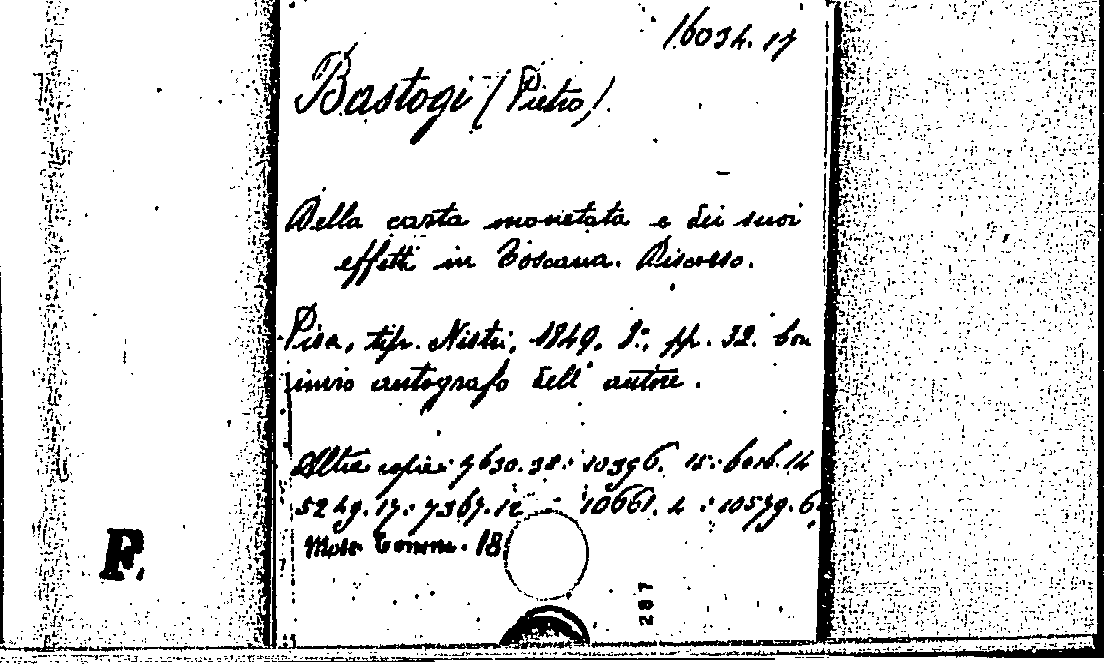 16034. 17
Bastogi (Pietro).
Della carta monetata e dei suoi
effetti in Toscana. Discorso.
Pisa, tip. Nistri, 1849. 8°, pp. 32. Con
invio autografo dell' autore.
Altre copie: 7630. 38: 10396. 15:
5249. 17: 7367. 12 : 10661. 4 : 10579. 6
Misc. Tomm. 18
F.
287